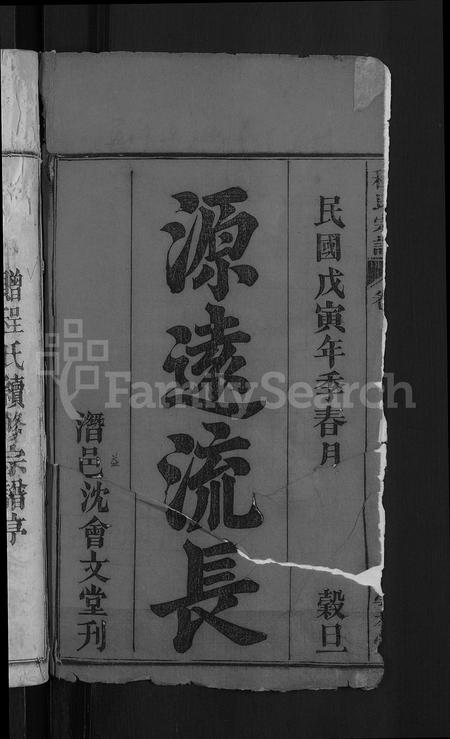 民國戊寅年季春月 穀旦
源遠流長
潛邑沈會文堂刊
贈程氏續修宗譜序
FamilySearch